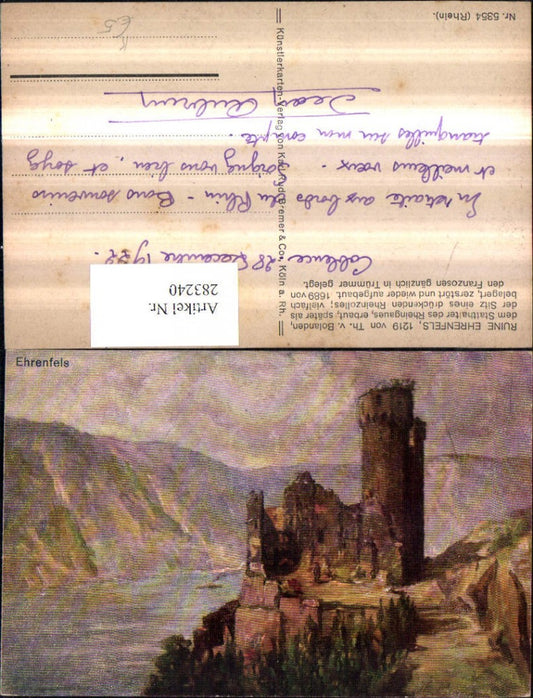 RUINE EHRENFELS, 1219 von Th. v. Bolanden,
dem Statthalter des Rheingaues, erbaut, später als
der Sitz eines drückenden Rheinzolles; vielfach
belagert, zerstört und wieder aufgebaut. 1689 von
den Franzosen gänzlich in Trümmer gelegt.
Coblence 28 Decembre
En retraite aux bords du Rhin - Bons souvenirs
et meilleurs voeux. vous bien, et soyez
tranquilles sur mon compte.
Künstlerkarten-Verlag von Bremer & Co., Köln a. Rh.
Nr. 5354 (Rhein).
Artikel Nr.
283240
Ehrenfels